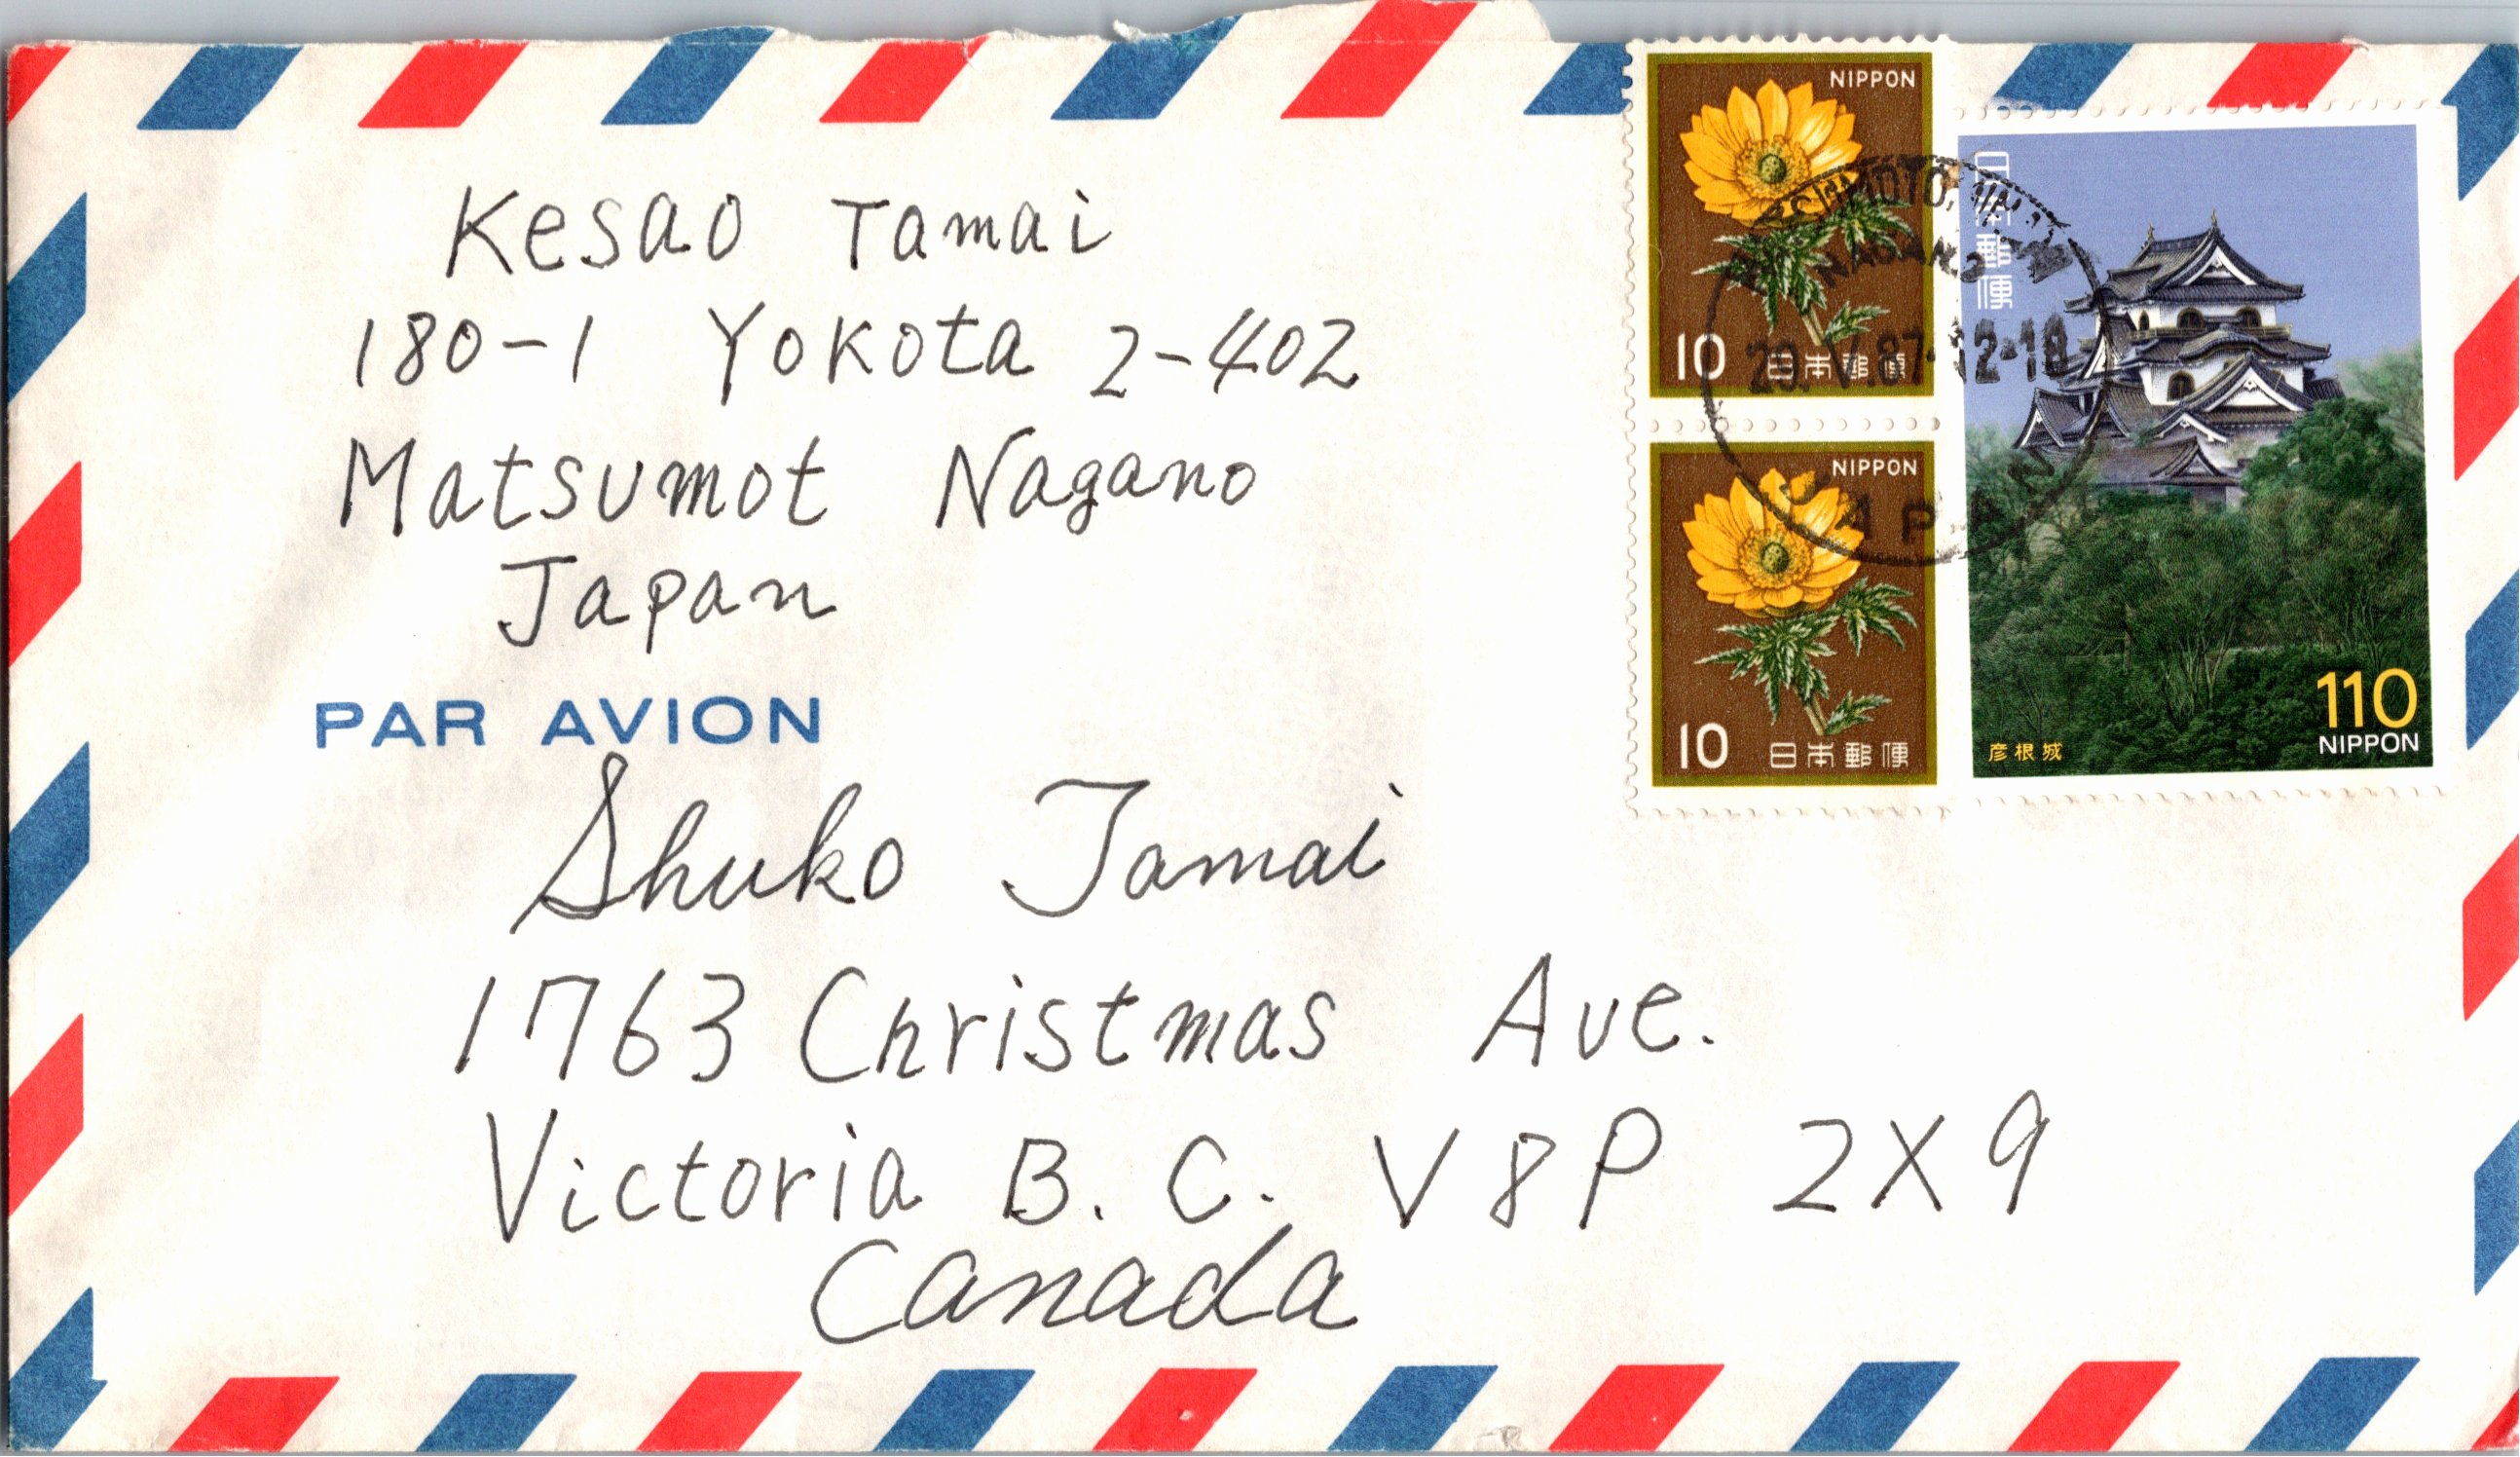 Kesao Tamai
180-1 Yokota 2-402
Matsumot Nagano
Japan
PAR AVION
Shuko Tamai
1763 Christmas Ave.
Victoria B. C. V8P 2X9
Canada
NIPPON
10 日本郵便
NIPPON
10 日本郵便
日本郵便
彦根城
110
NIPPON
NAGANO
V.87 12-18
JAPAN